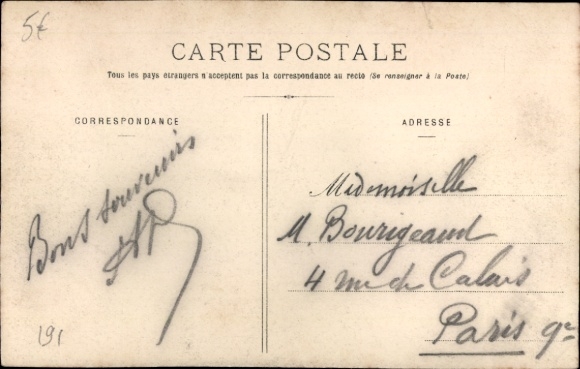 5€
CARTE POSTALE
Tous les pays étrangers n'acceptent pas la correspondance au recto (Se renseigner à la Poste)
CORRESPONDANCE
ADRESSE
Bons souvenirs
Mademoiselle
M. Bourigeaud
4 rue de Calais
Paris 9e
191